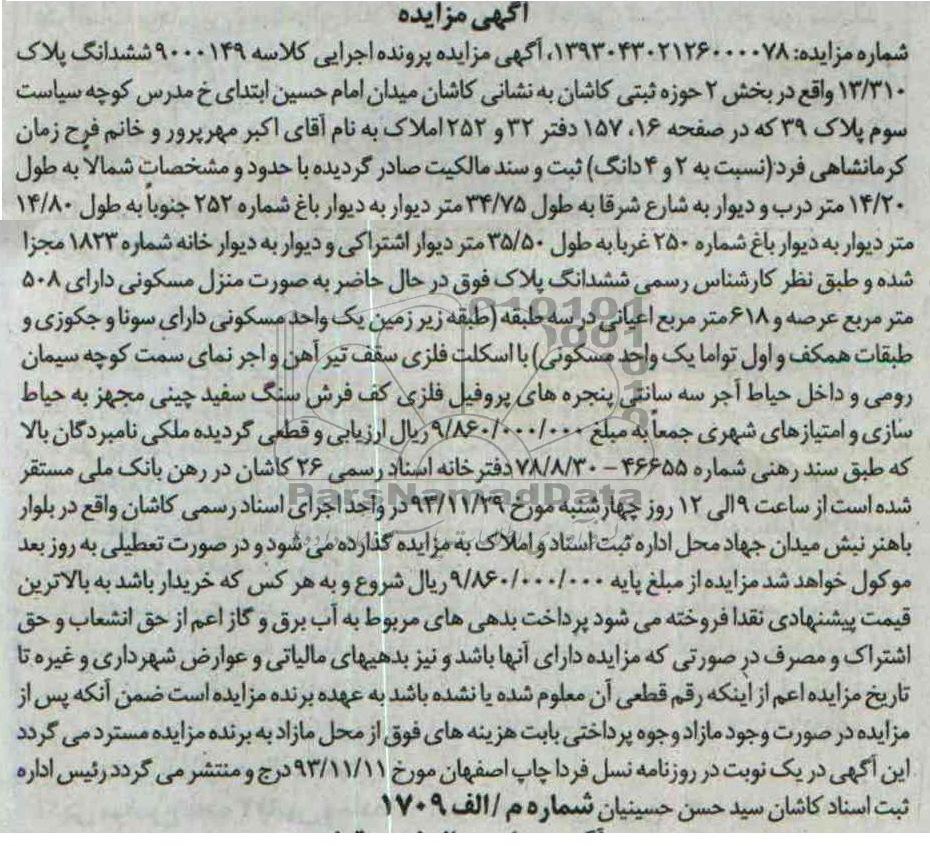 آگهی مزایده
شماره مزایده: ۱۳۹۳۰۴۳۰۲۱۲۶۰۰۰۰۷۸، آگهی مزایده پرونده اجرایی کلاسه ۹۰۰۰۱۴۹ ششدانگ پلاک
۱۳/۳۱۰ واقع در بخش ۲ حوزه ثبتی کاشان به نشانی کاشان میدان امام حسین ابتدای خ مدرس کوچه سیاست
سوم پلاک ۳۹ که در صفحه ۱۶، ۱۵۷ دفتر ۳۲ و ۲۵۲ املاک به نام آقای اکبر مهرپرور و خانم فرح زمان
کرمانشاهی فرد (نسبت به ۲ و ۴ دانگ) ثبت و سند مالکیت صادر گردیده با حدود و مشخصات شمالا به طول
۱۴/۲۰ متر درب و دیوار به شارع شرقا به طول ۳۴/۷۵ متر دیوار به دیوار باغ شماره ۲۵۲ جنوباً به طول ۱۴/۸۰
متر دیوار به دیوار باغ شماره ۲۵۰ غربا به طول ۳۵/۵۰ متر دیوار اشتراکی و دیوار به دیوار خانه شماره ۱۸۲۳ مجزا
شده و طبق نظر کارشناس رسمی ششدانگ پلاک فوق در حال حاضر به صورت منزل مسکونی دارای ۵۰۸
متر مربع عرصه و ۶۱۸ متر مربع اعیانی در سه طبقه (طبقه زیر زمین یک واحد مسکونی دارای سونا و جکوزی و
طبقات همکف و اول تواما یک واحد مسکونی) با اسکلت فلزی سقف تیر آهن و اجر نمای سمت کوچه سیمان
رومی و داخل حیاط آجر سه سانتی پنجره های پروفیل فلزی کف فرش سنگ سفید چینی مجهز به حیاط
سازی و امتیازهای شهری جمعاً به مبلغ ۹/۸۶۰/۰۰۰/۰۰۰ ریال ارزیابی و قطعی گردیده ملکی نامبردگان بالا
که طبق سند رهنی شماره ۴۶۶۵۵ - ۷۸/۸/۳۰ دفترخانه اسناد رسمی ۲۶ کاشان در رهن بانک ملی مستقر
شده است از ساعت ۹ الی ۱۲ روز چهارشنبه مورخ ۹۳/۱۱/۲۹ در واحد اجرای اسناد رسمی کاشان واقع در بلوار
باهنر نبش میدان جهاد محل اداره ثبت اسناد و املاک به مزایده گذارده می شود و در صورت تعطیلی به روز بعد
موکول خواهد شد مزایده از مبلغ پایه ۹/۸۶۰/۰۰۰/۰۰۰ ریال شروع و به هر کس که خریدار باشد به بالاترین
قیمت پیشنهادی نقدا فروخته می شود پرداخت بدهی های مربوط به آب برق و گاز اعم از حق انشعاب و حق
اشتراک و مصرف در صورتی که مزایده دارای آنها باشد و نیز بدهیهای مالیاتی و عوارض شهرداری و غیره تا
تاریخ مزایده اعم از اینکه رقم قطعی آن معلوم شده یا نشده باشد به عهده برنده مزایده است ضمن آنکه پس از
مزایده در صورت وجود مازاد وجوه پرداختی بابت هزینه های فوق از محل مازاد به برنده مزایده مسترد می گردد
این آگهی در یک نوبت در روزنامه نسل فردا چاپ اصفهان مورخ ۹۳/۱۱/۱۱ درج و منتشر می گردد رئیس اداره
ثبت اسناد کاشان سید حسن حسینیان شماره م / الف ۱۷۰۹
ParsNamadData